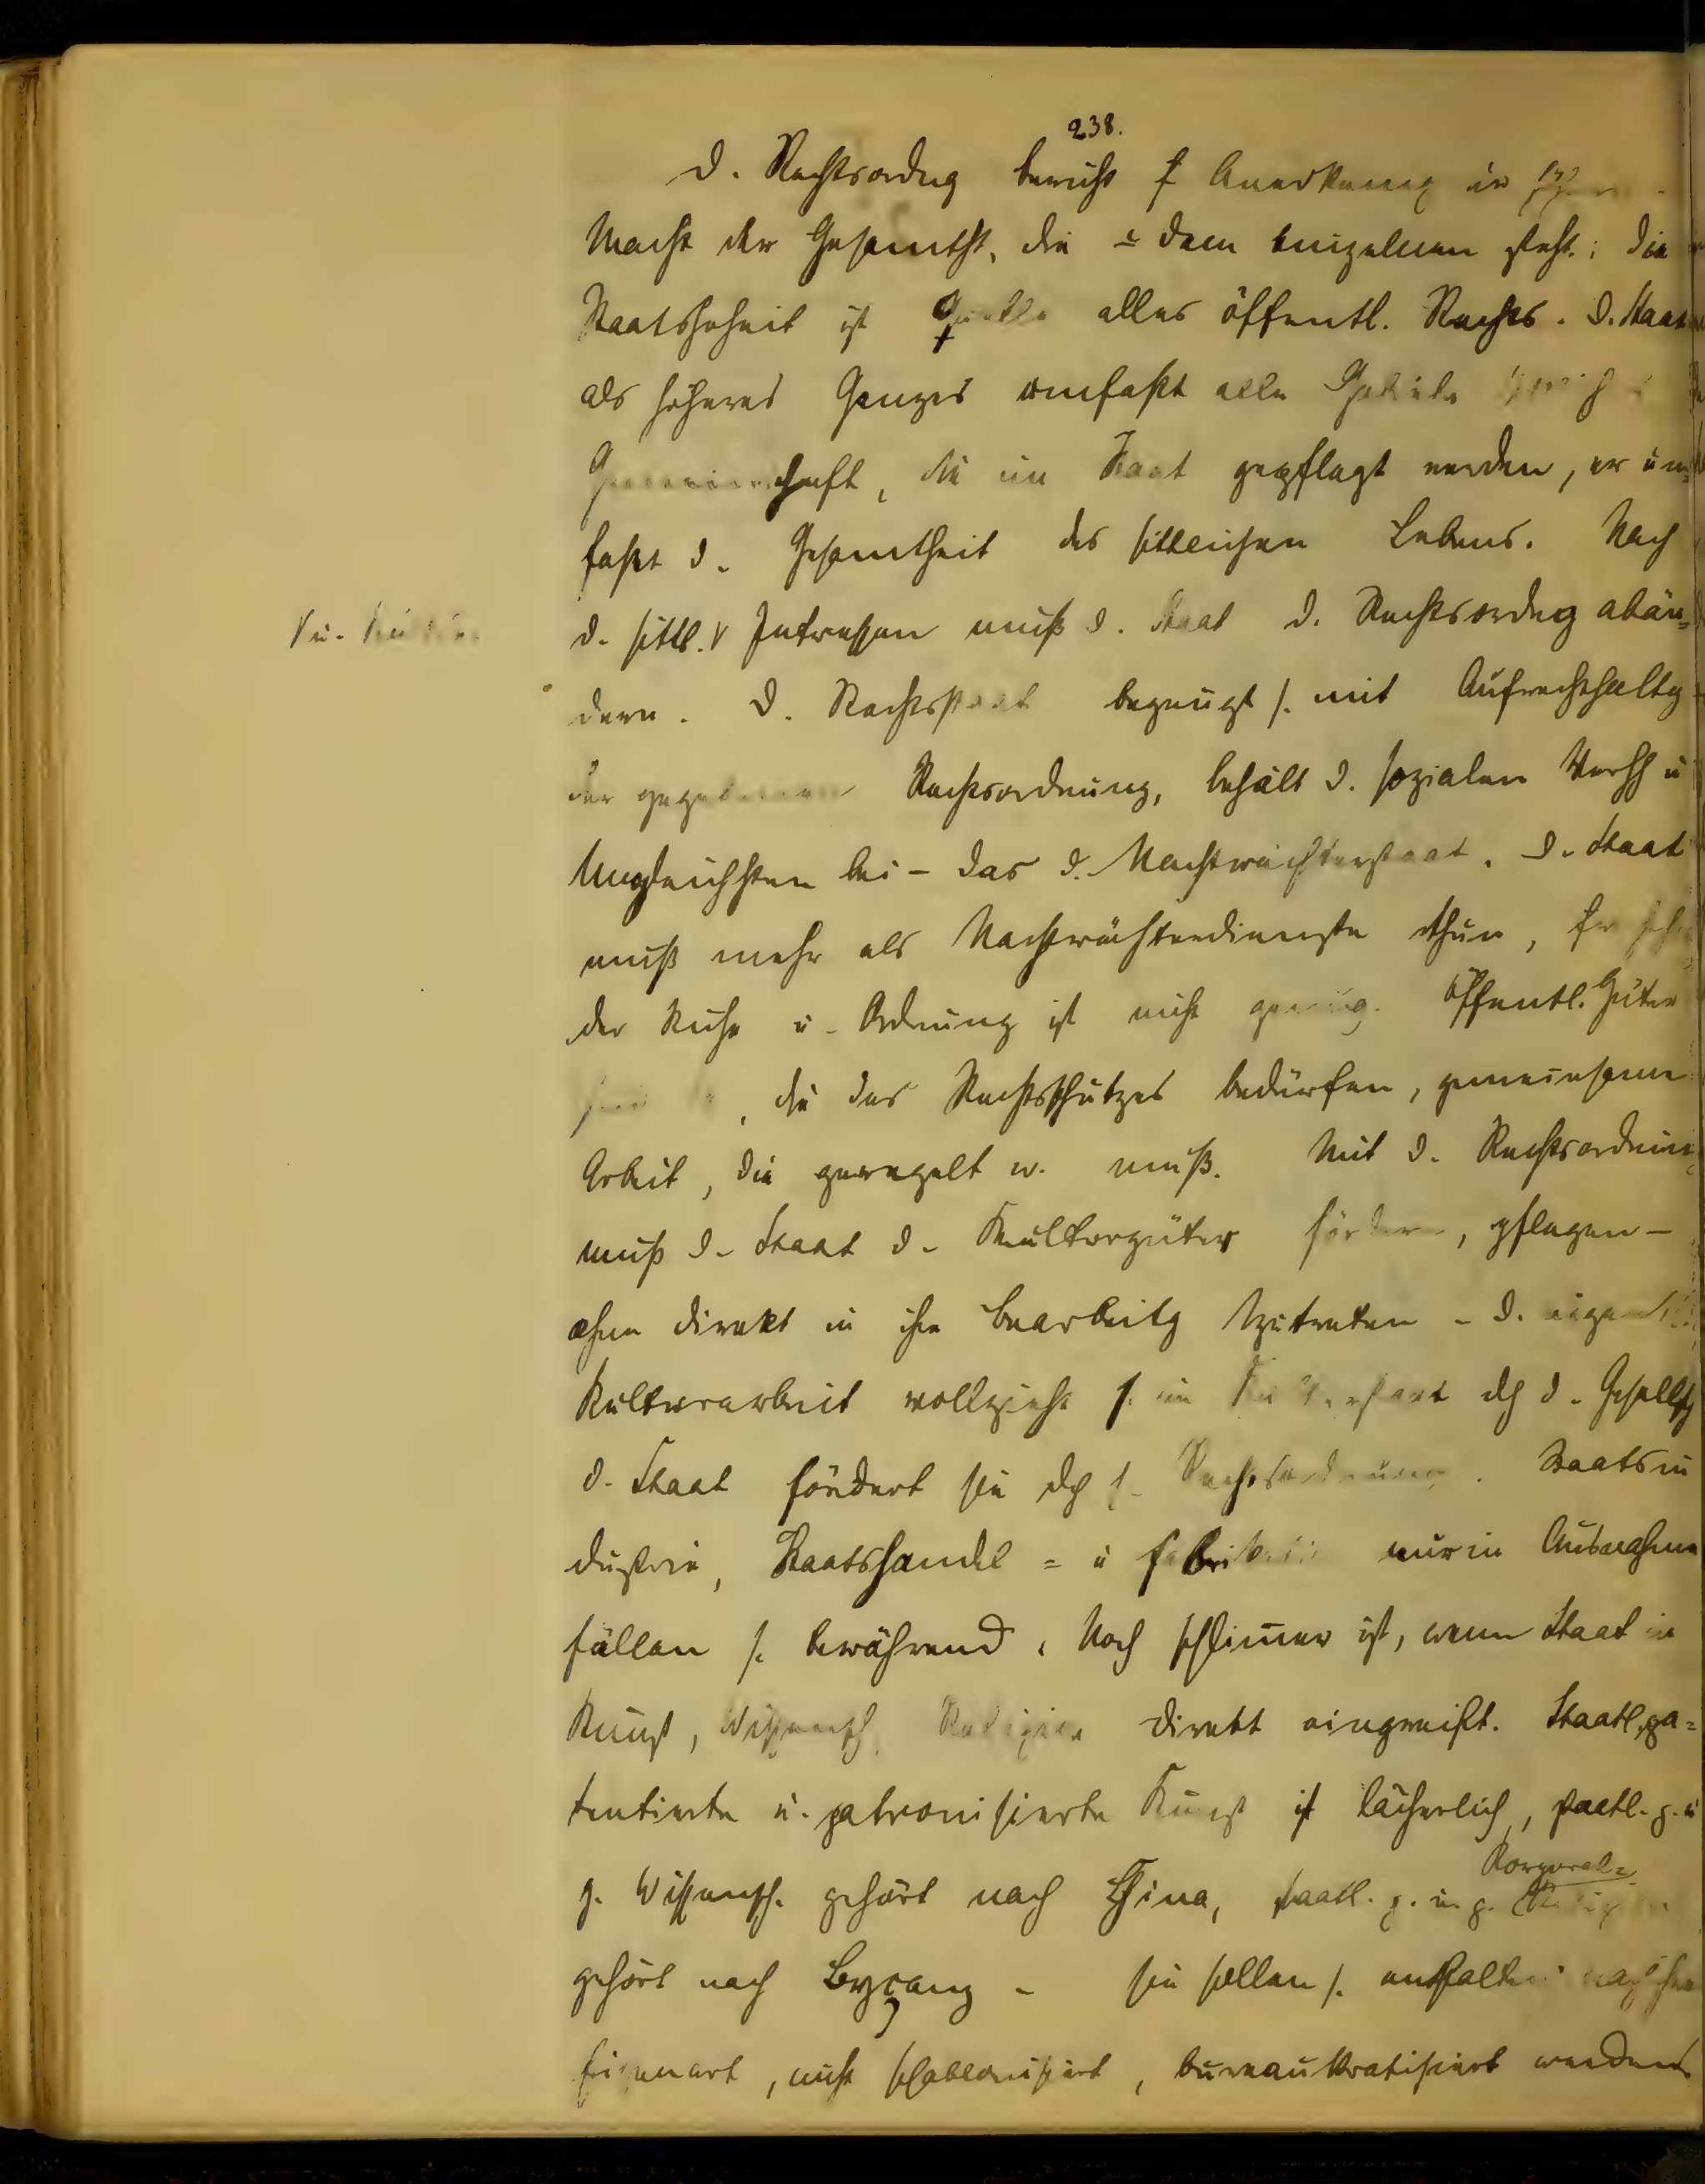 238.
D. Rechtsordng beruht f Anerkennung
Macht der Gesamtht, die dem einzelnen steht; die
Staatshoheit ist Quelle alles öffentl. Rechts. D. Staat
als höheres Ganzes umfaßt alle Gebiete
Gemeinschaft, die im Staat gepflegt werden, er um=
faßt d. Gesamtheit des sittlichen Lebens. Nach
d. sittl. V Intressen muß d. Staat d. Rechtsordng abän=
V u. Kultur
dern. D. Rechtsstaat begnügt s. mit Aufrechthaltg
der gegebenen Rechtsordnung, behält d. sozialen Verhh u
Ungleichhten bei - das d. Nachtwächterstaat. D. Staat
muß mehr als Nachtwächterdienste thun,
der Ruhe u. Ordnung ist nicht genug. Öffentl. Güter
, die des Rechtsschutzes bedürfen, gemeinsame
Arbeit, die geregelt w. muß. Mit d. Rechtsordnung
muß d. Staat d. Kulturgüter fördern, pflegen -
ohne direkt in ihre Bearbeitg zutreten - d.
Kulturarbeit vollzieht s. im Kulturstaat dch d. Gesellsch
d. Staat fördert sie dch s. Rechtsordnung. Staatsin
dustrie, Staatshandel = u fabriken nur in Ausnahme
fällen s. bewährend. Noch schlimer ist, wenn Staat in
Kunst, Wissensch, Religion direkt eingreift. Staatl. pa=
tentierte u. patronisierte Kunst ist lächerlich, staatl. p. u
p. Wissensch. gehört nach China, staatl. p. u. p. Religion
Korporal=
gehört nach Byzanz - sie sollen s. entfalten nach ihrer
Eigenart, nicht schablonisiert, bureaukratisiert werden